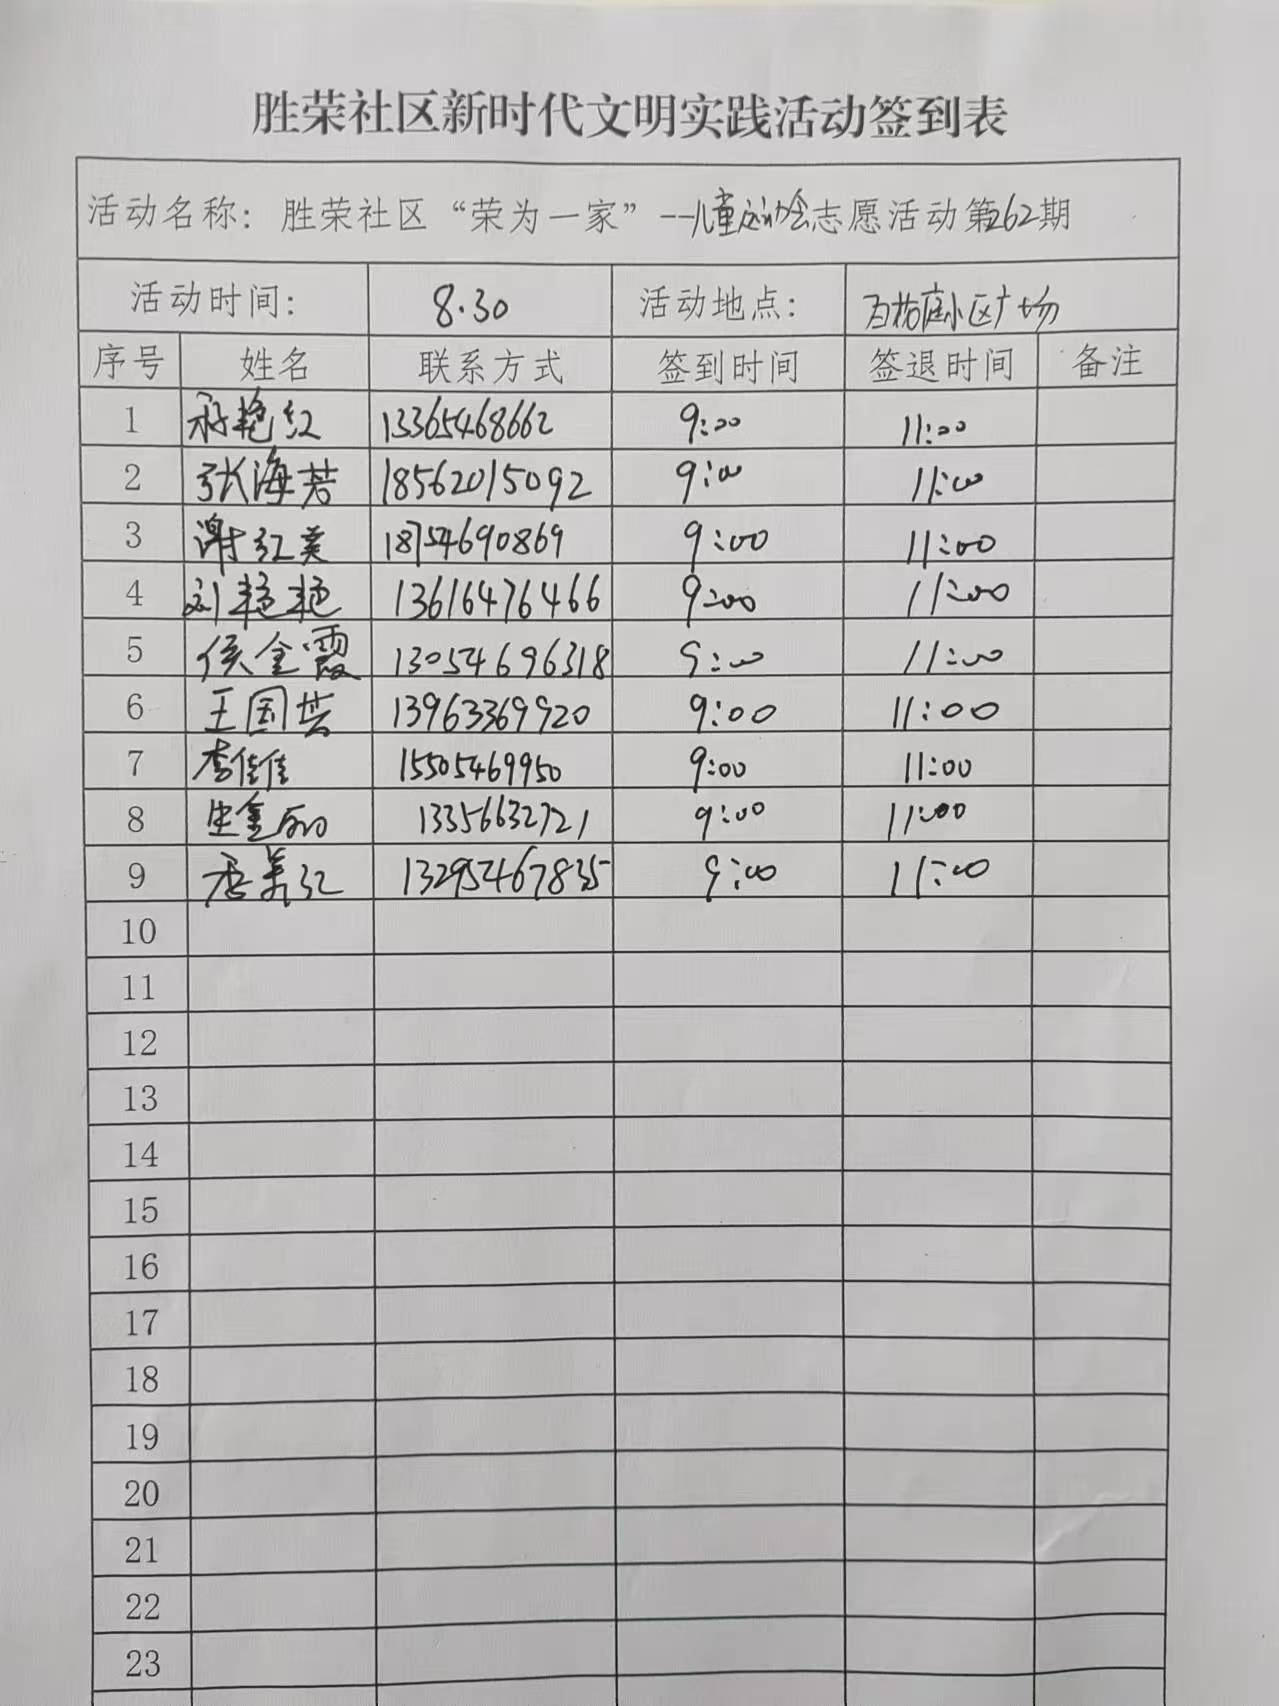 胜荣社区新时代文明实践活动签到表
活动名称：胜荣社区“荣为一家”--儿童运动会志愿活动第262期
活动时间： 8.30 活动地点： 小区广场
序号 姓名 联系方式 签到时间 签退时间 备注
1 艳红 13365468662 9:00 11:00
2 张海芳 18562015092 9:00 11:00
3 谢红英 18754690869 9:00 11:00
4 刘艳艳 13616476466 9:00 11:00
5 侯金霞 13054696318 9:00 11:00
6 王国芸 13963369920 9:00 11:00
7 李佳佳 15505469950 9:00 11:00
8 金丽 13356632721 9:00 11:00
9 美红 13295467835 9:00 11:00
10
11
12
13
14
15
16
17
18
19
20
21
22
23